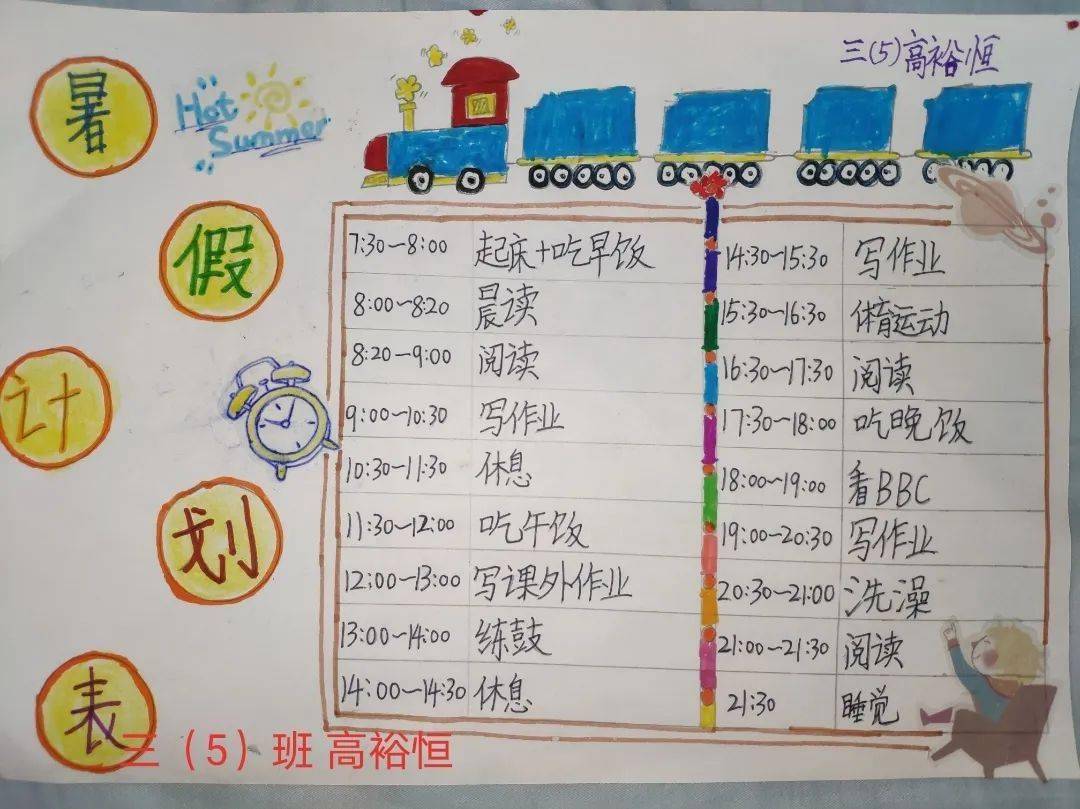 三(5)高裕恒
暑
假
计
划
表
Hot
Summer
7:30-8:00 起床+吃早饭
8:00-8:20 晨读
8:20-9:00 阅读
9:00-10:30 写作业
10:30-11:30 休息
11:30-12:00 吃午饭
12:00-13:00 写课外作业
13:00-14:00 练鼓
14:00-14:30 休息
14:30-15:30 写作业
15:30-16:30 体育运动
16:30-17:30 阅读
17:30-18:00 吃晚饭
18:00-19:00 看BBC
19:00-20:30 写作业
20:30-21:00 洗澡
21:00-21:30 阅读
21:30 睡觉
三（5）班 高裕恒